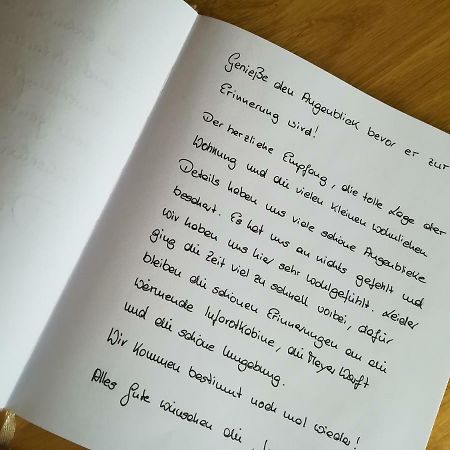 Genieße den Augenblick bevor er zur
Erinnerung wird!
Der herzliche Empfang, die tolle Lage der
Wohnung und die vielen kleinen wohnlichen
Details haben uns viele schöne Augenblicke
beschert. Es hat uns an nichts gefehlt und
wir haben uns hier sehr wohlgefühlt. Leider
ging die Zeit viel zu schnell vorbei, dafür
bleiben die schönen Erinnerungen an die
wärmende Infarotkabine, die Meyer Werft
und die schöne Umgebung.
Wir kommen bestimmt noch mal wieder!
Alles Gute wünschen die